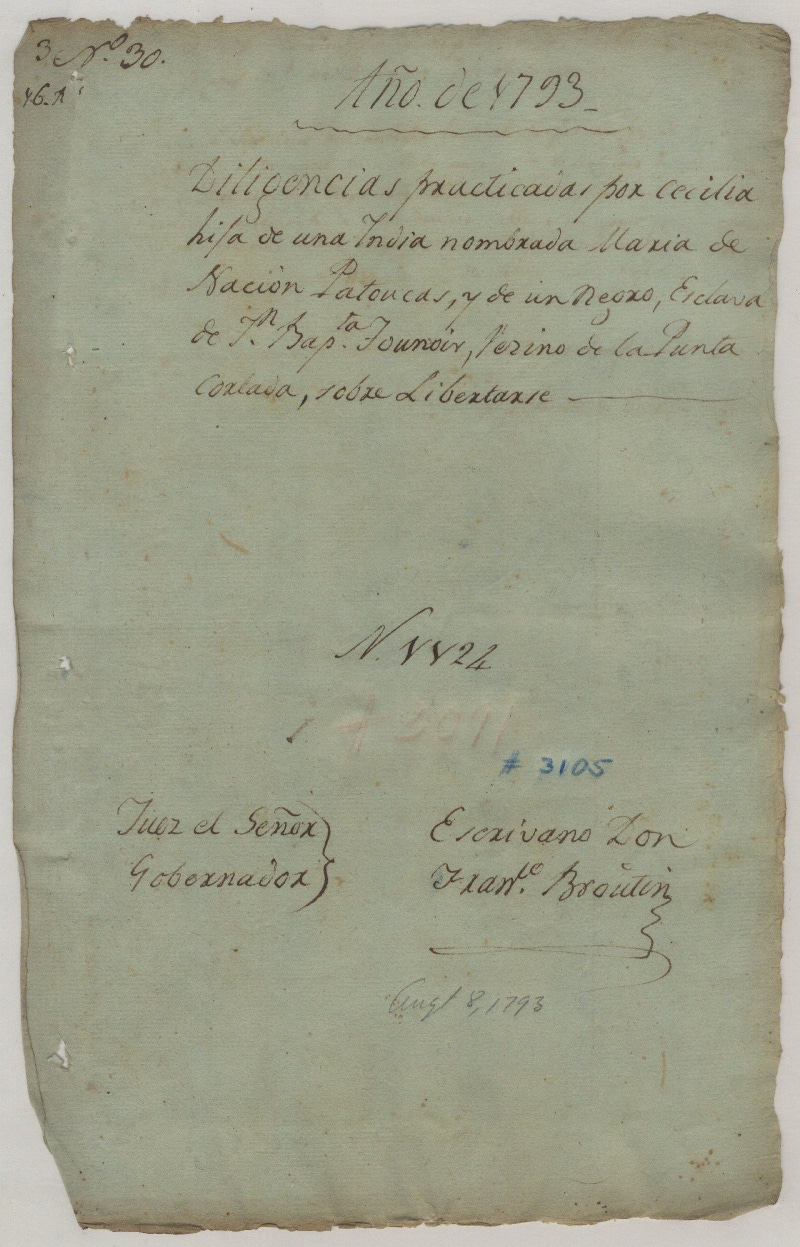 3 Nº 30.
Año. de 1793
Diligencias practicadas por cecilia
hija de una India nombrada Maria de
Nación Patoucas, y de un Negro, Esclava
de Jn Bap.ta Founoir, Vezino de la Punta
Cortada, sobre Libertarse
N. 1124
# 3091
# 3105
Juez el Señor
Gobernador
Escrivano Don
Fran.co Broutin
Augt 8, 1793